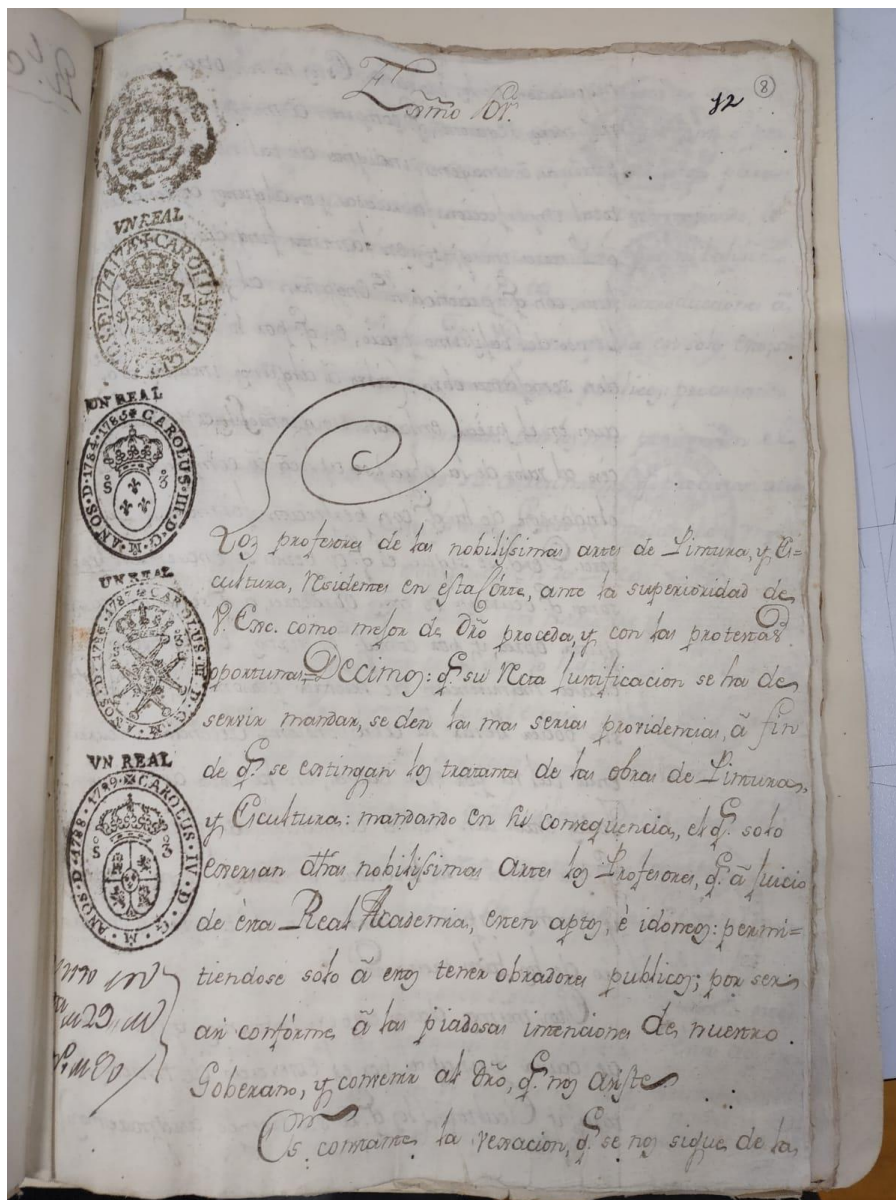 Exmo Sr.
12
8
VN REAL
CAROLUS III D G
1774 1775
UN REAL
ANOS · D · 1784 · 1785 CAROLUS · III · D · G · M
UN REAL
ANOS · D · 1786 · 1787 CAROLUS III D · G · M
VN REAL
ANOS · D · 1788 · 1789 CAROLUS · IV D · G · M
Los profesores de las nobilissimas artes de Pintura, y Es=
cultura, residentes en èsta Córte, ante la superioridad de
V. Exc. como mejor de dro proceda, y con las protestas
oportunas=Decimos: q.e su recta justificacion se ha de
servir mandar, se den las mas serias providencias, â fin
de q.e se estingan los tratantes de las obras de Pintura,
y Escultura: mandando en su consequencia, el q.e solo
exersan dhas nobilissimas Artes los Profesores, q.e â juicio
de èsta Real Academia, esten aptos, è idoneos: permi=
tiendose sólo â esos tener obradores publicos; por ser
asi confórme â las piadosas intenciones de nuestro
Soberano, y convenir al dro, q.e nos asiste
Es constante la vexacion, q.e se nos sigue de la